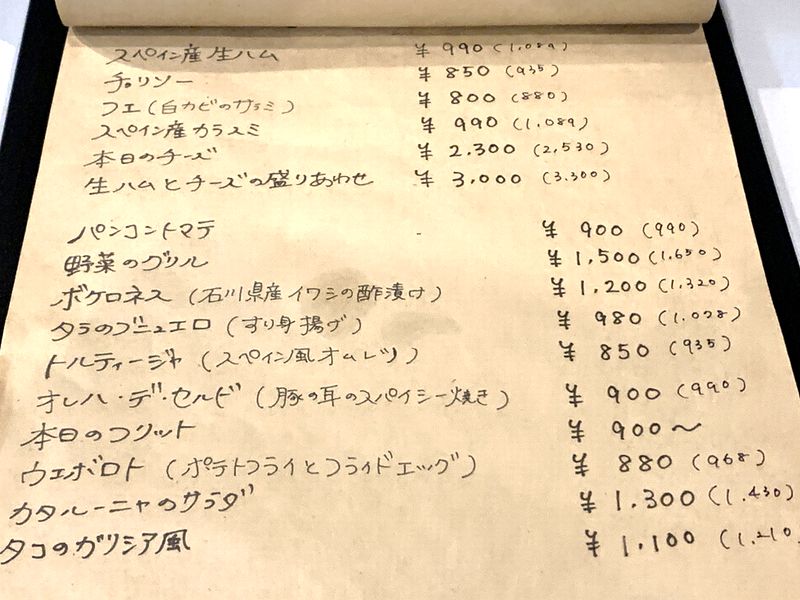 スペイン産生ハム ¥990(1.089)
チョリソー ¥850(935)
フエ(白カビのサラミ) ¥800(880)
スペイン産カラスミ ¥990(1.089)
本日のチーズ ¥2.300(2,530)
生ハムとチーズの盛りあわせ ¥3,000(3.300)
パンコントマテ ¥900(990)
野菜のグリル ¥1,500(1.650)
ボケロネス(石川県産イワシの酢漬け) ¥1,200(1.320)
タラのブニュエロ(すり身揚げ) ¥980(1.078)
トルティージャ(スペイン風オムレツ) ¥850(935)
オレハ・デ・セルド(豚の耳のスパイシー焼き) ¥900(990)
本日のフリット ¥900〜
ウエボロト(ポテトフライとフライドエッグ) ¥880(968)
カタルーニャのサラダ ¥1.300(1.430)
タコのガリシア風 ¥1.100(1.210)